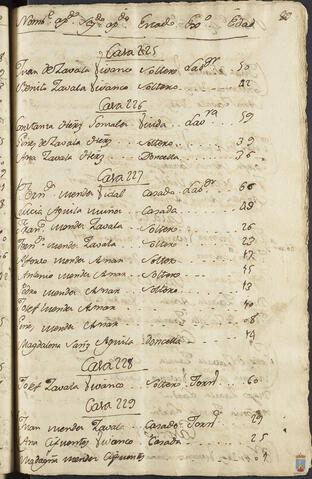 Nomb.e ap.do Seg.do ap.do Estado Exo Edad
Casa 225
Juan de Zavala Vivanco Soltero Labor 50
Benito Zavala Vivanco Soltero 42
Casa 226
Constanza Viuda Labra 59
Zavala Soltero 39
Ana Zavala Doncella 36
Casa 227
Fern.do Mendez Vidal Casado Labor 66
Aguila Muñoz Casada 48
Fran.co Mendez Zavala Soltero 26
Fern.do Mendez Zavala Soltero 23
Alfonso Mendez Aznar Soltero 17
Antonio Mendez Aznar Soltero 15
Pedro Mendez Aznar Soltero 13
Josef Mendez Aznar 10
Mendez Aznar 08
Magdalena Aguila Doncella 14
Casa 228
Josef Zavala Vivanco Soltero Jorn 60
Casa 229
Juan Mendez Zavala Casado Jorn 29
Ana Cifuentes Vivanco Casada 25
Mendez Cifuentes 01